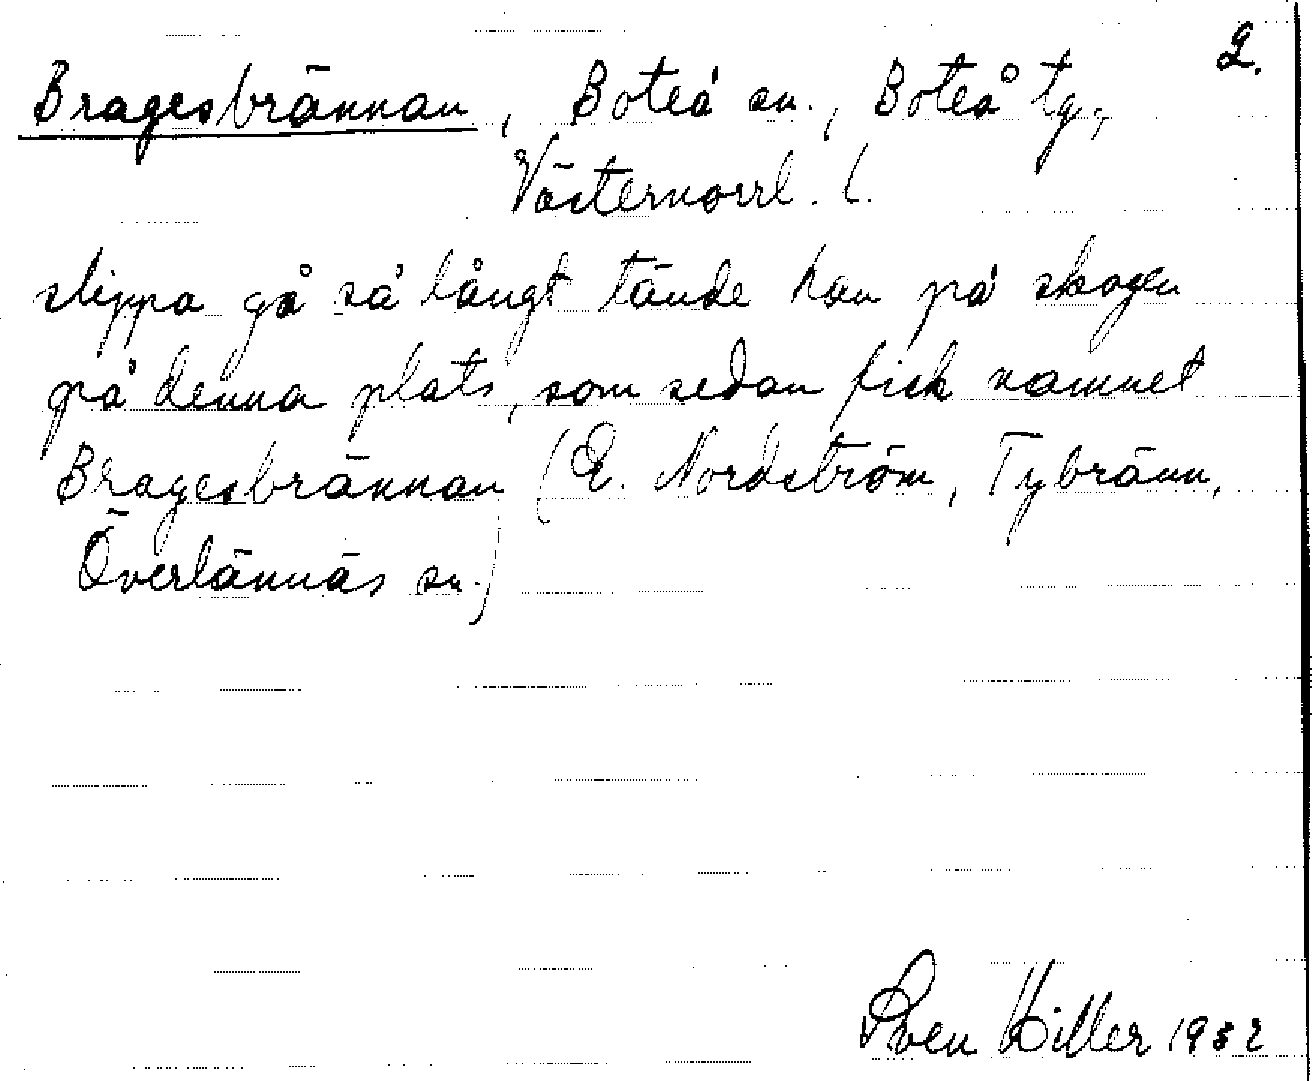 2.
Bragesbrännan, Boteå sn., Boteå tg.,
Västernorrl. l.
slippa gå så långt tände han på skogen
på denna plats, som sedan fick namnet
Bragesbrännan (E. Nordström, Tybränn,
Överlännäs sn.)
Sven Hiller 1932